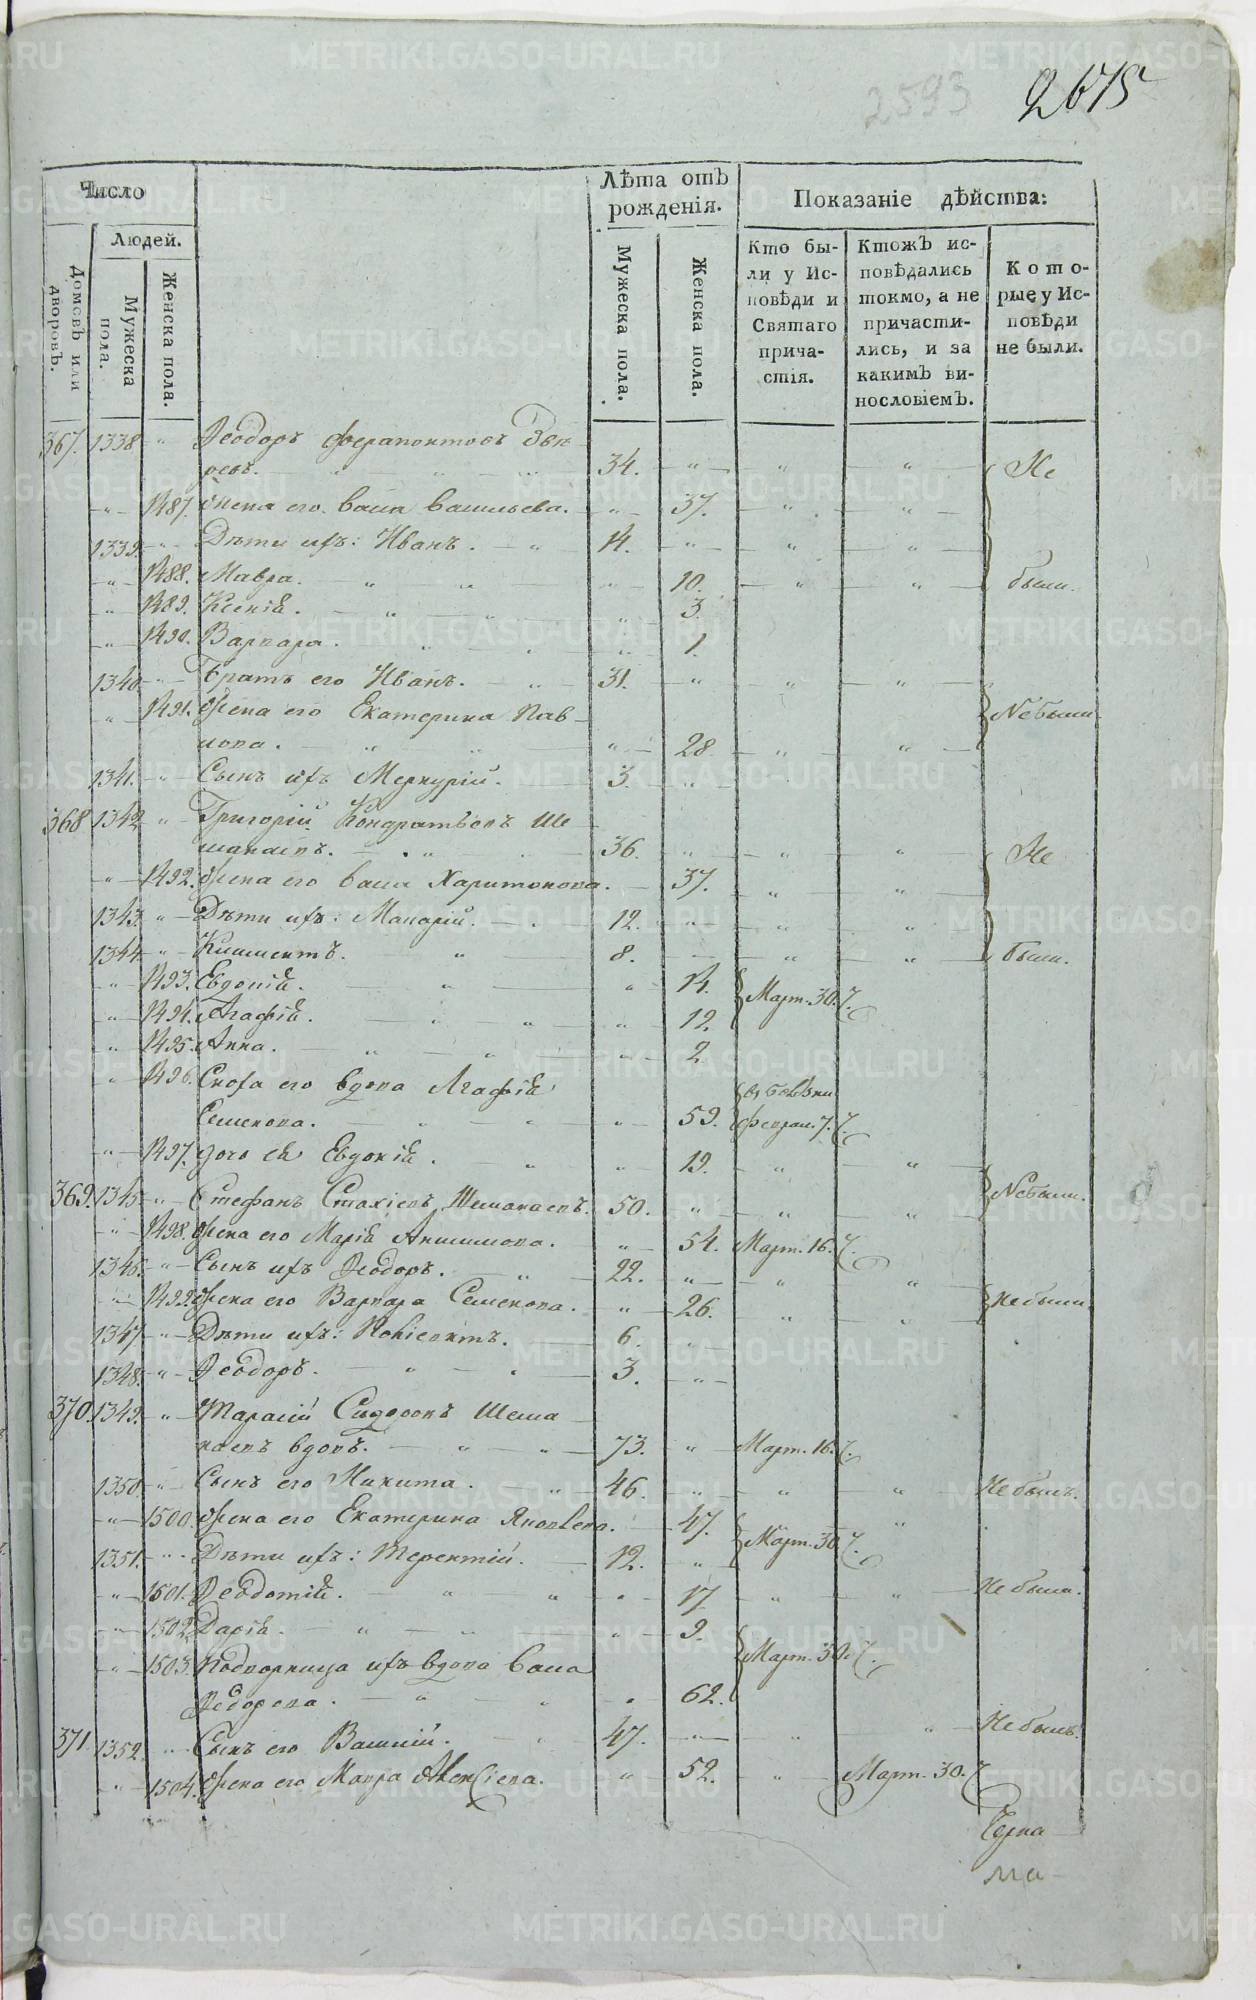 2593
2675
Число
Лѣта отъ рожденія.
Показаніе дѣйства:
Домовъ или дворовъ.
Людей.
Мужеска пола.
Женска пола.
Мужеска пола.
Женска пола.
Кто были у Исповѣди и Святаго причастія.
Ктожъ исповѣдались токмо, а не причастились, и за какимъ винословіемъ.
Которые у Исповѣди не были.
367. 1338 " Ѳеодоръ Ферапонтовъ Звѣ
ревъ. 34. " " " Не
" 1487. Жена его Васса Васильева. " 37. " "
1339. " Дѣти ихъ: Иванъ. " 14. " " "
" 1488. Мавра. " " " 10. " " были.
" 1489. Ксенія. " " 3.
" 1490. Варвара. " " 1.
1340. " Братъ его Иванъ. " 31. " " "
" 1491. Жена его Екатерина Пав
лова. " " " 28 " " Не были.
1341. " Сынъ ихъ Меркурій. 3. "
368 1342 " Григорій Кондратьевъ Ше
манаевъ. " 36. " " " Не
" 1492. Жена его Васса Харитонова. 37. " "
1343. " Дѣти ихъ: Макарій. 12. " " "
1344. " Климентъ. " 8. " " были.
" 1493. Евдокія. " " 14. Март. 30.
" 1494. Агафія. " " " 12
" 1495. Анна. " " " 2
" 1496. Сноха его вдова Агафія
Семенова. " " " 59. Феврал. 7.
" 1497. дочь ея Евдокія. " " 19. " "
369. 1345 " Стефанъ Стахіевъ Шеманаевъ. 50. " " " Не были.
" 1498. Жена его Марія Анисимова. " 54. Март. 16.
1346. " Сынъ ихъ Ѳеодоръ. " 22. " " "
" 1499. Жена его Варвара Семенова. " 26. " " Не были
1347 " Дѣти ихъ: 6. "
1348. " Ѳеодоръ. " " 3. "
370. 1349. " Тарасій Сидоровъ Шема
наевъ вдовъ. " " 73. " Март. 16.
1350. " Сынъ его Никита. " 46. " " " Не былъ.
" 1500. Жена его Екатерина Яковлева. 47. " Март. 30.
1351. " Дѣти ихъ: Терентій. 12. "
" 1501. Ѳеодотія. " " " 17 " " Не была.
" 1502. Дарія. " " " 9.
" 1503. Подворница ихъ вдова Васса Март. 30.
Ѳедорова. " " " 62.
371. 1352. " Сынъ его Василій. " 47. " " " Не былъ
" 1504. Жена его Мавра Алексіева. " 52. " Март. 30.